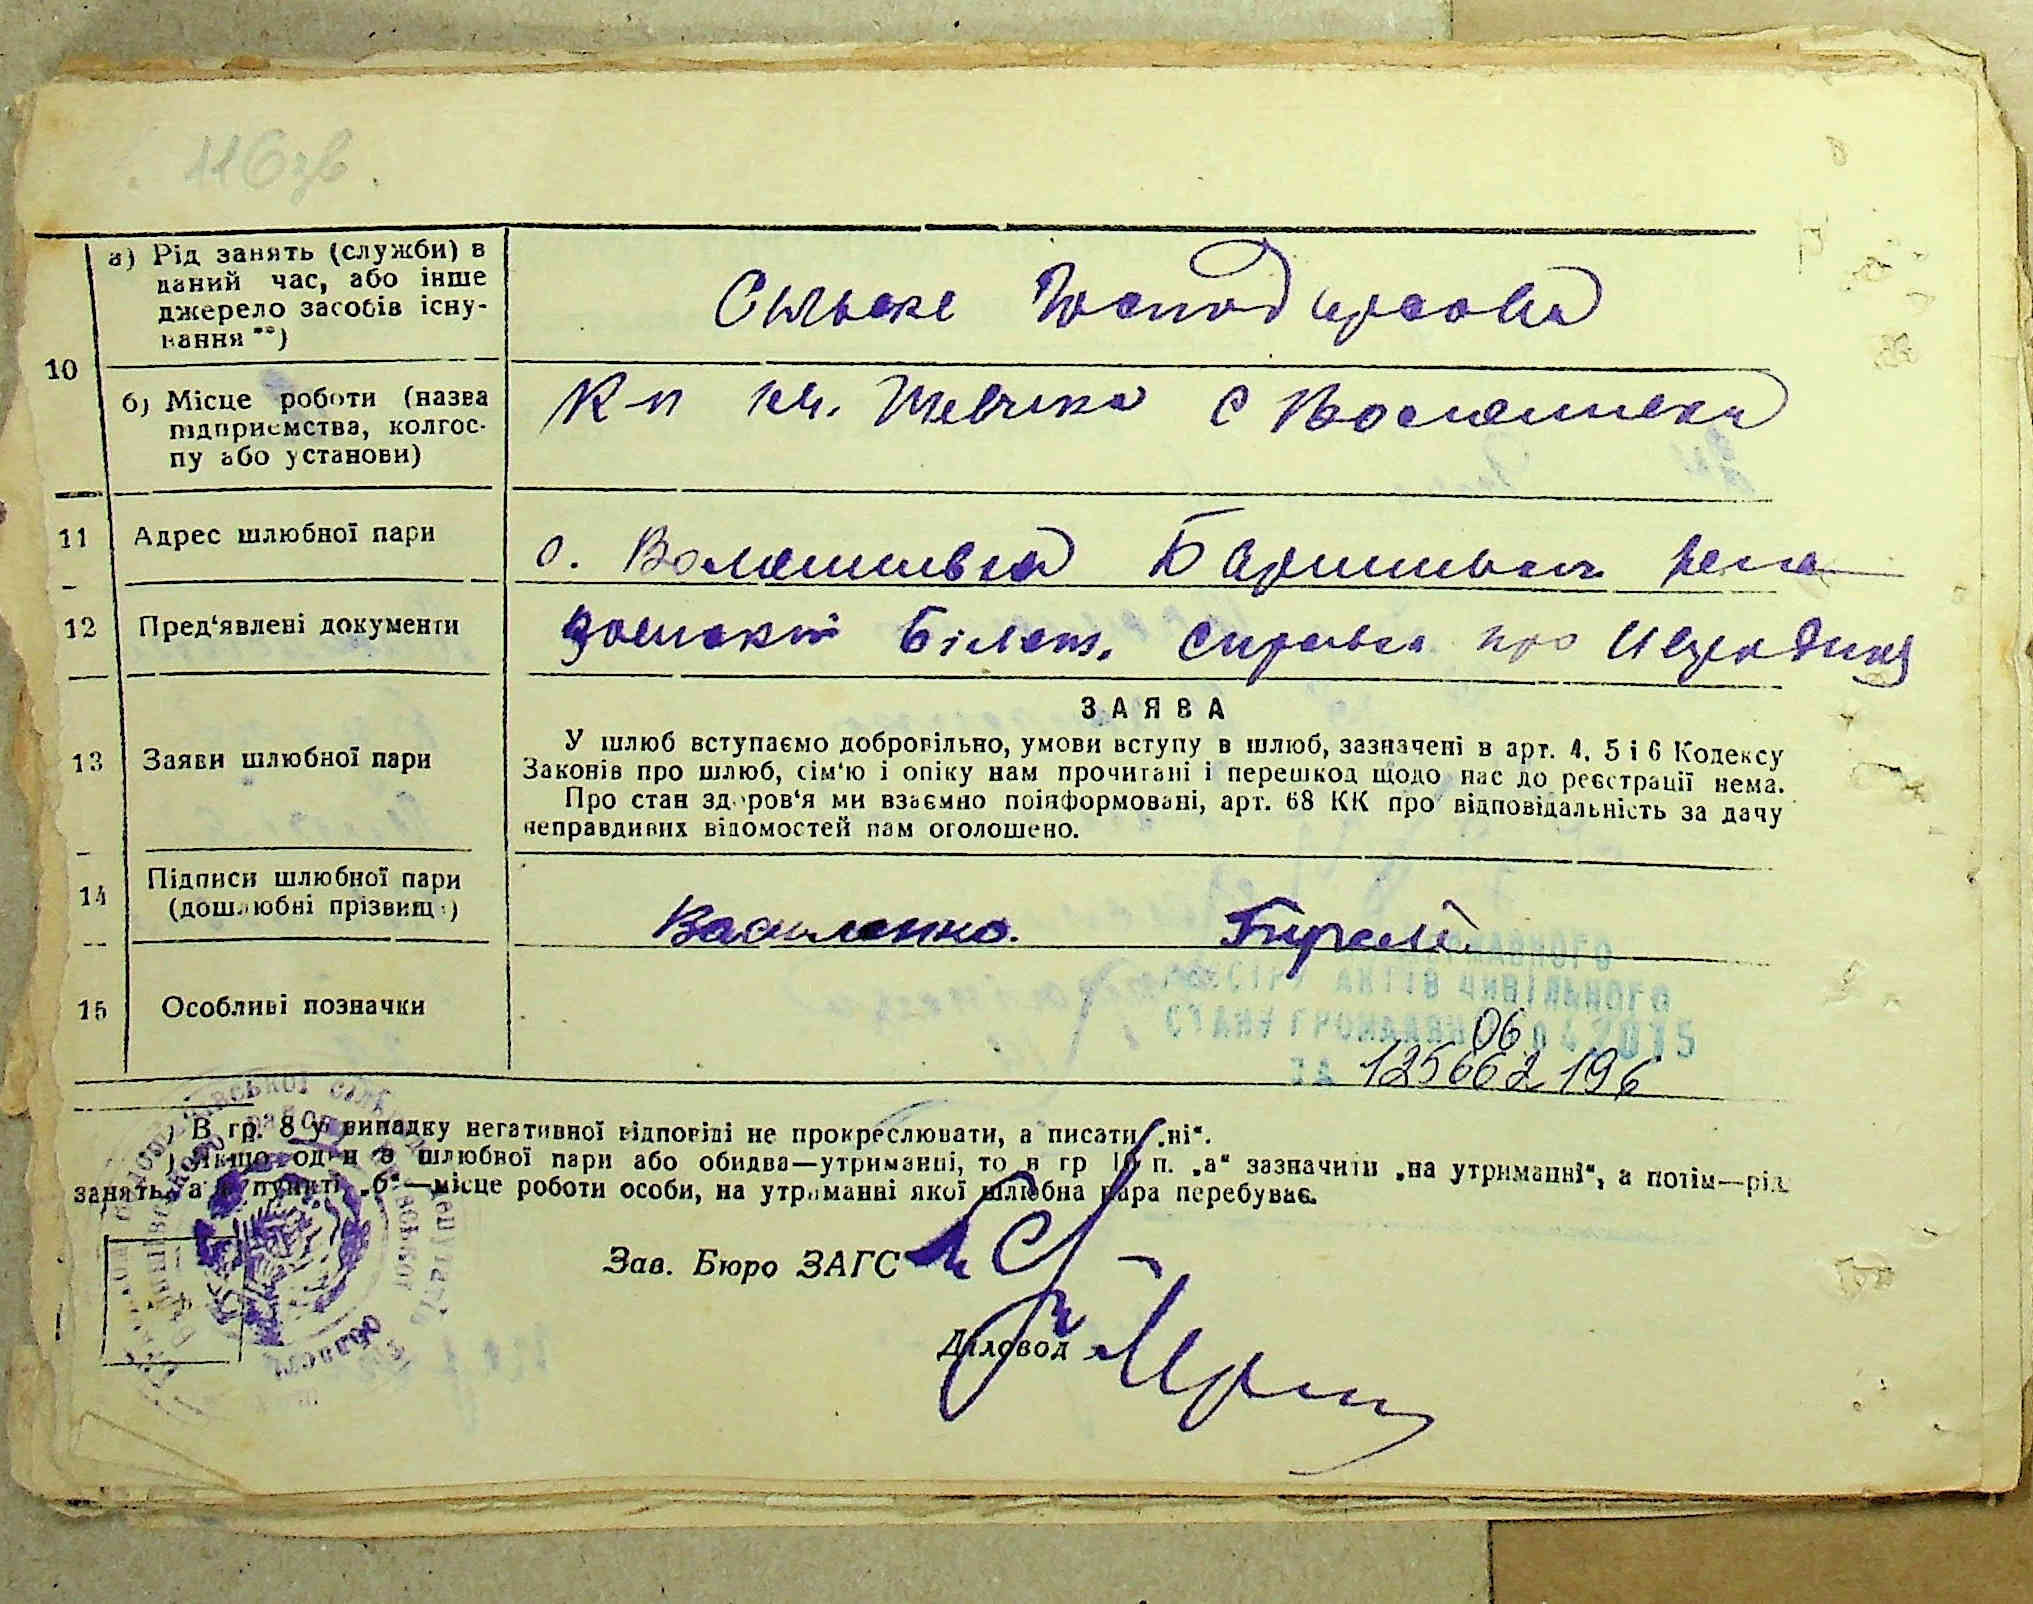 116 зв.
а) Рід занять (служби) в
даний час, або інше
джерело засобів існу-
вання **)
Сільске Господарсова
10
б) Місце роботи (назва
підприємства, колгос-
пу або установи)
К-п ім. Шевченка с Волошиновка
11 Адрес шлюбної пари
с. Волошиновка Баришивськ.
12 Пред'явлені документи
воиский білет. справка про
13 Заяви шлюбної пари
ЗАЯВА
У шлюб вступаємо добровільно, умови вступу в шлюб, зазначені в арт. 4, 5 і 6 Кодексу
Законів про шлюб, сім'ю і опіку нам прочитані і перешкод щодо нас до реєстрації нема.
Про стан здоров'я ми взаємно поінформовані, арт. 68 КК про відповідальність за дачу
неправдивих відомостей нам оголошено.
14 Підписи шлюбної пари
(дошлюбні прізвища)
Василенко.
15 Особливі позначки
ДЕРЖАВНОГО
РЕЄСТРУ АКТІВ ЦИВІЛЬНОГО
СТАНУ ГРОМАДЯН 06 04 2015
ЗА 125662196
) В гр. 8 у випадку негативної відповіді не прокреслювати, а писати „ні“.
) Якщо один з шлюбної пари або обидва—утриманні, то в гр 10 п. „а“ зазначити „на утриманні“, а потім—рід
занять, а в пункті „б“—місце роботи особи, на утриманні якої шлюбна пара перебуває.
Зав. Бюро ЗАГС
Діловод
області